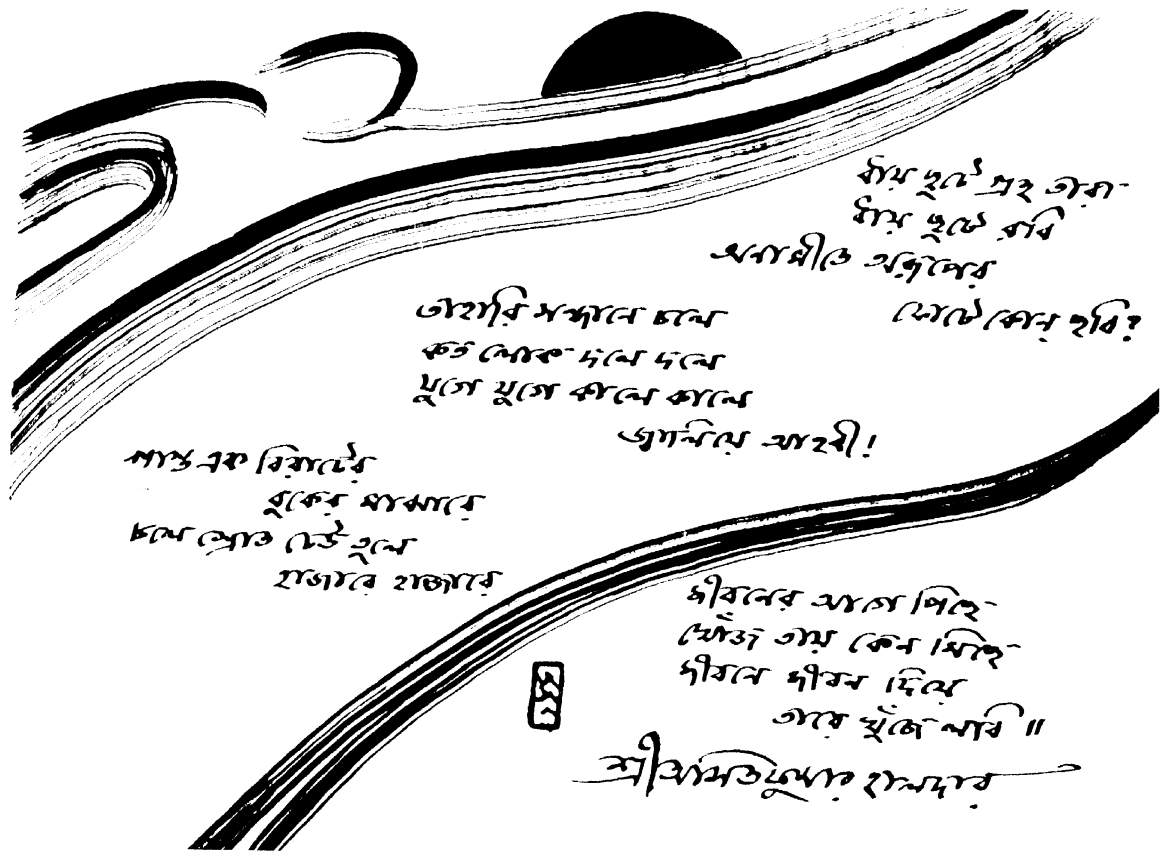 ধায় ছুটে গ্রহ তারা
ধায় ছুটে রবি
অনাদীতে অরূপের
ফোটে কোন্ ছবি?
তাহারি সন্ধানে চলে
কত লোক দলে দলে
যুগে যুগে কালে কালে
জ্বালিয়ে আহবী!
শান্ত এক বিরাটের
বুকের মাঝারে
চলে স্রোত ঢেউ তুলে
হাজারে হাজারে
জীবনের আগে পিছে
খোঁজ তায় কেন মিছে
জীবনে জীবন দিয়ে
তারে খুঁজে লবি॥
শ্রীঅসিতকুমার হালদার